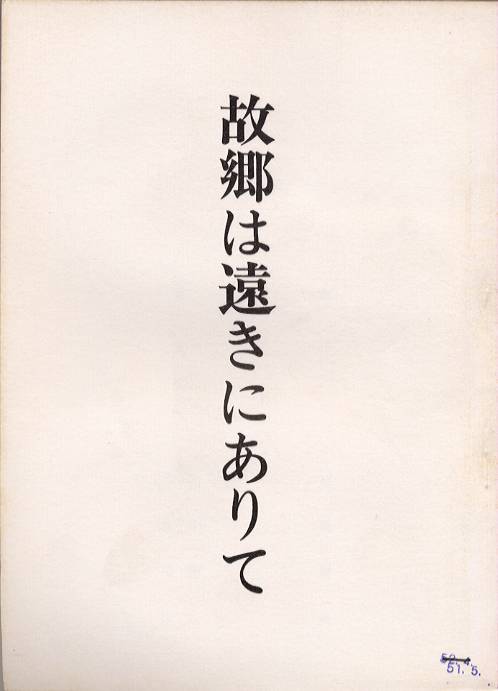 故郷は遠きにありて
51. 5.